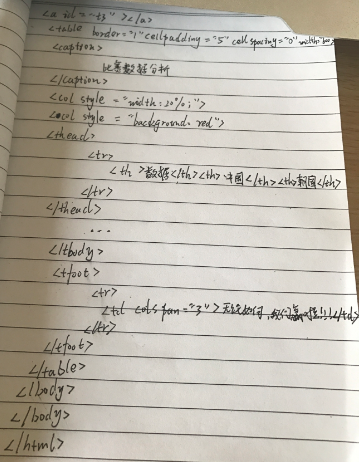 <a id="t3"></a>
<table border="1" cellpadding="5" cellspacing="0" width=
<caption>
比赛数据分析
</caption>
<col style="width:20%;">
<col style="background: red">
<thead>
<tr>
<th>数据</th><th>中国</th><th>韩国</th>
</tr>
</thead>
...
</tbody>
<tfoot>
<tr>
<td cols pan="3">无论如何,我们赢!!!</td>
</tr>
</tfoot>
</table>
</body>
</body>
</html>